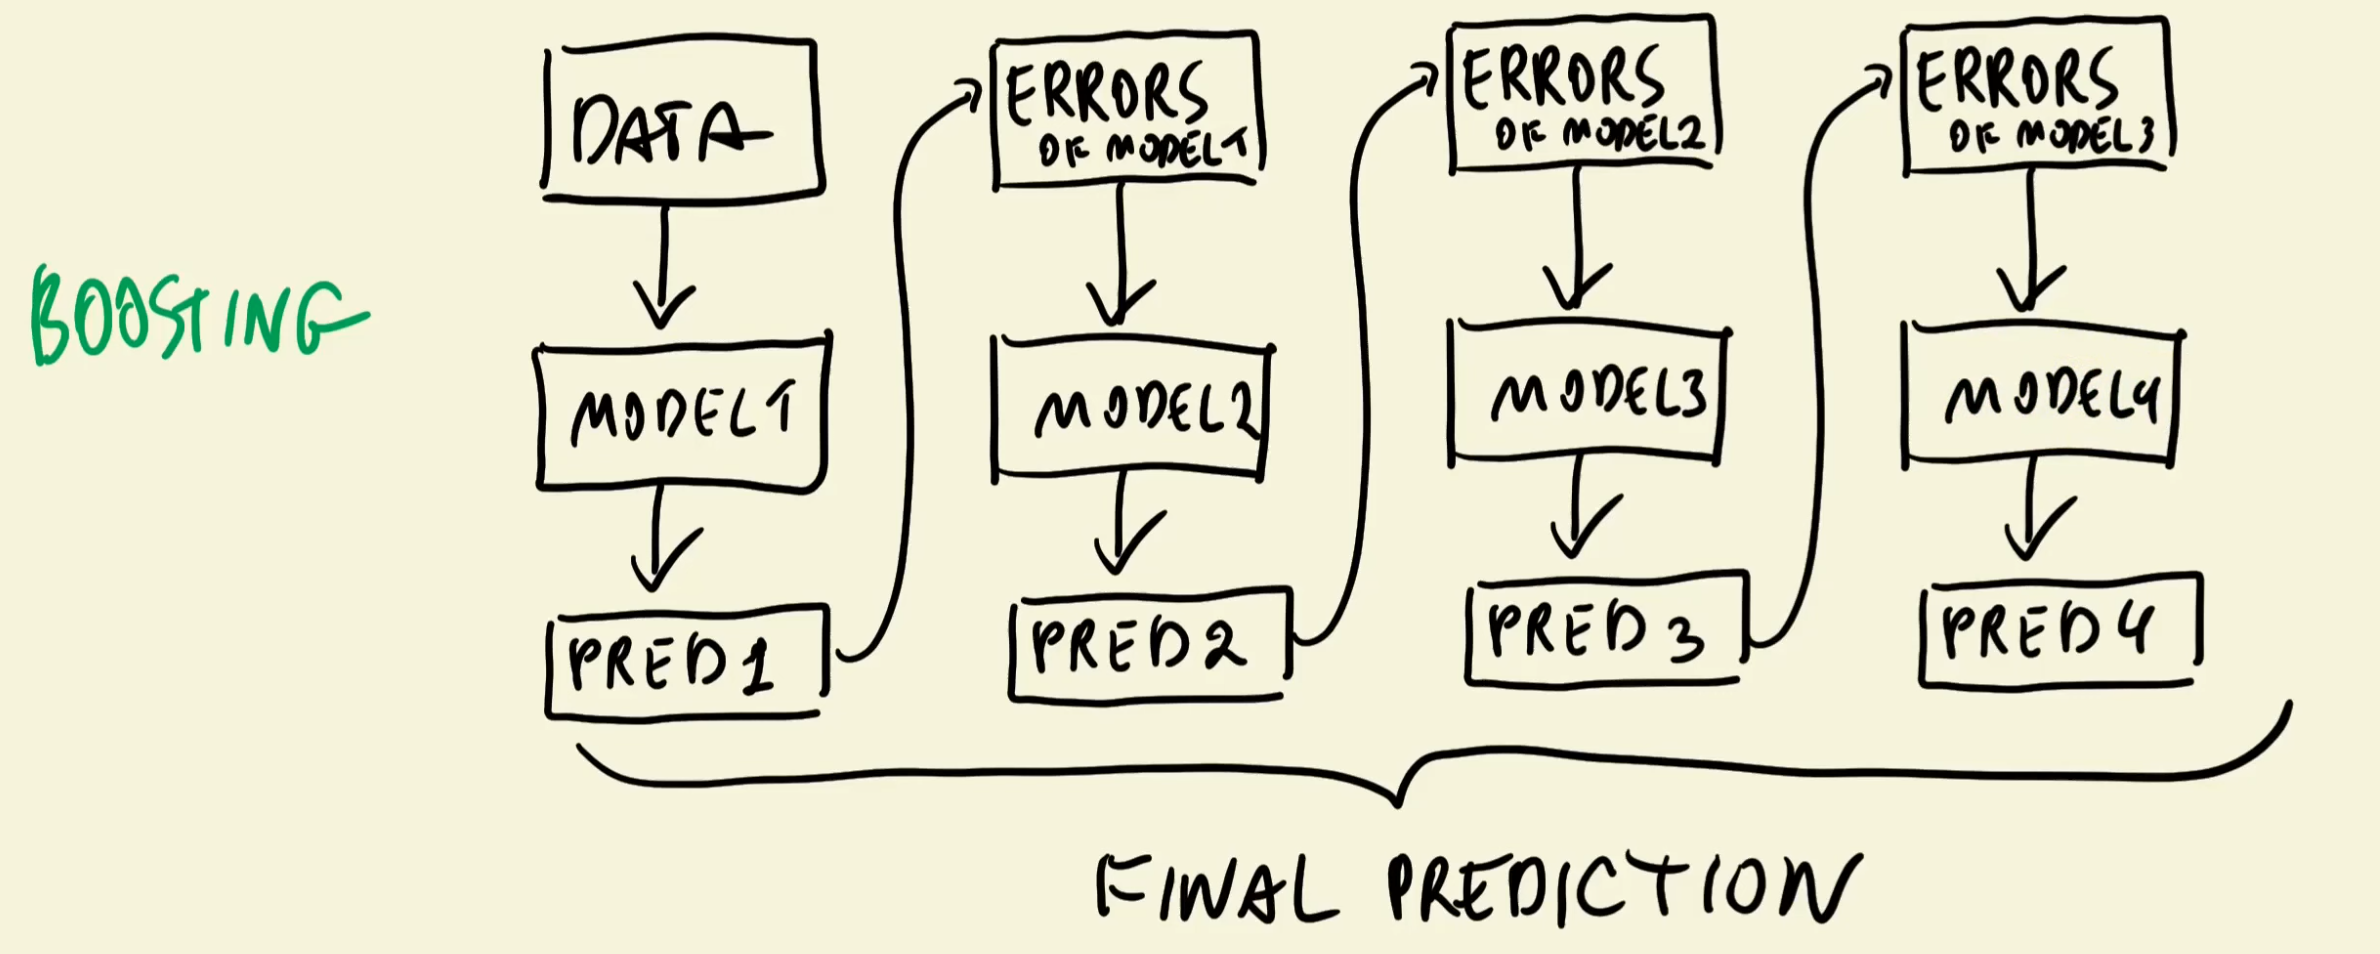 BOOSTING
DATA
MODEL1
PRED1
ERRORS
OF MODEL1
MODEL2
PRED2
ERRORS
OF MODEL2
MODEL3
PRED3
ERRORS
OF MODEL3
MODEL4
PRED4
FINAL PREDICTION